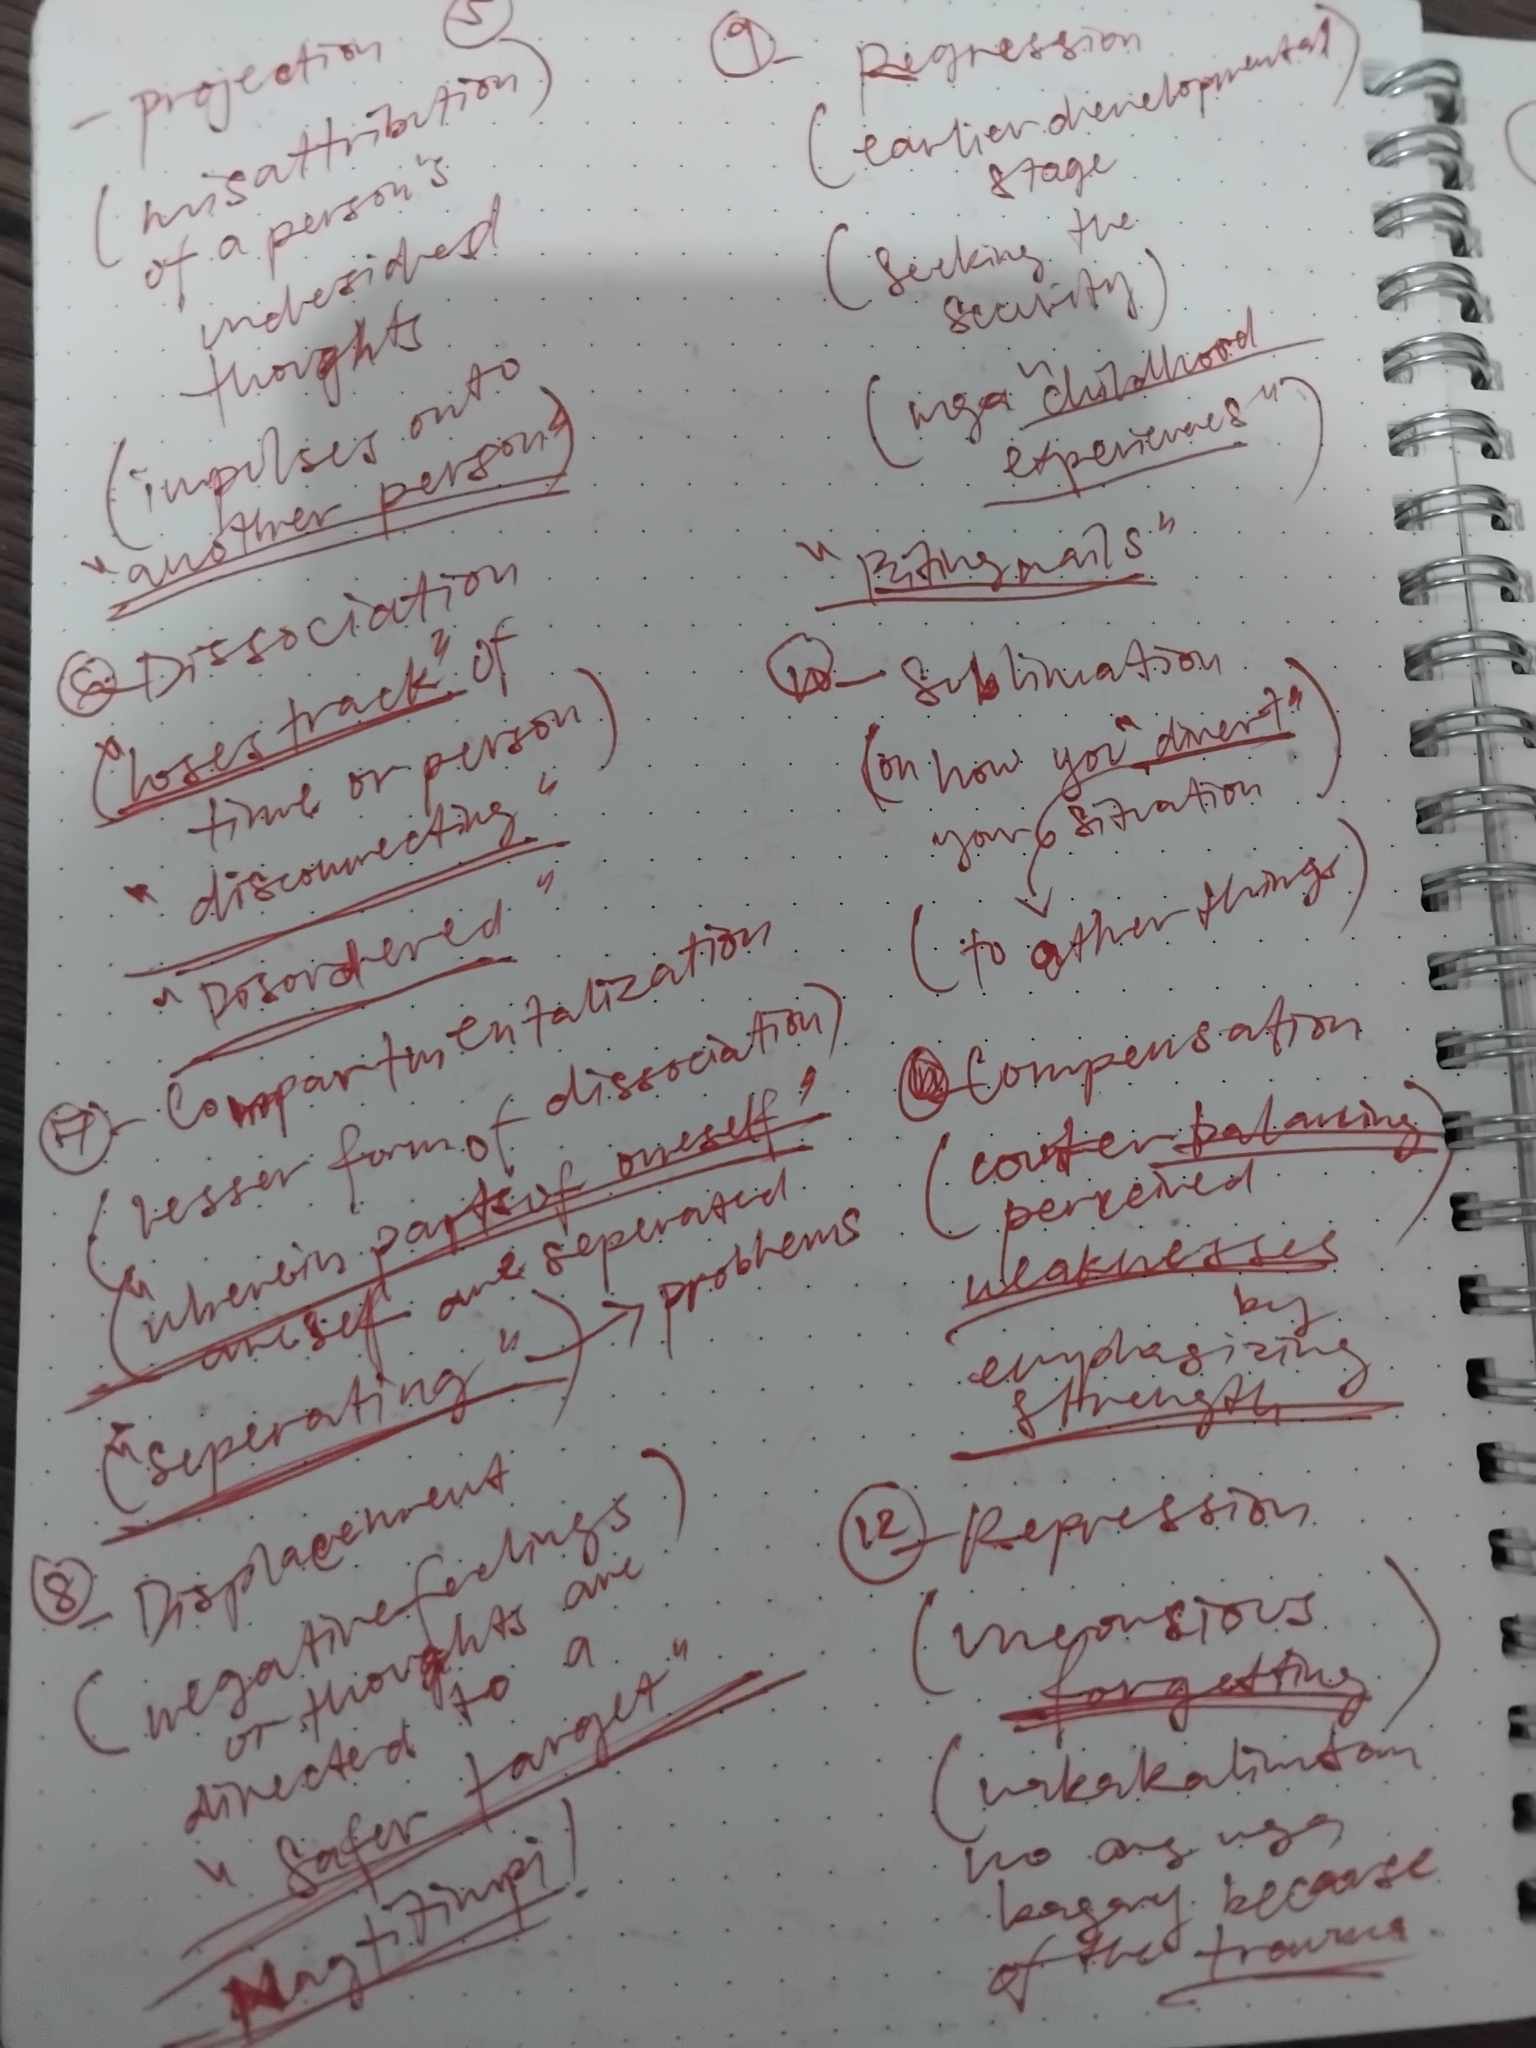 5
- projection
(misattribution)
of a person's
undesired
thoughts
(impulses onto
"another person")
6 - Dissociation
("loses track" of
time or person)
"disconnecting"
"Disordered"
7 - Compartmentalization
(lesser form of dissociation)
("wherein parts of oneself"
are seperated
("seperating") → problems
8 - Displacement
(negative feelings)
or thoughts are
directed to a
"safer target"
Magtitimpi)
9 - Regression
(earlier developmental)
stage
(seeking the
security)
(mga "childhood
experiences")
"Biting nails"
10 - Sublimation
(on how you "divert"
your situation)
(to other things)
- Compensation
(counter balancing
perceived
weaknesses
by
emphasizing
strength
12 - Repression
(unconsious
forgetting)
(nakakalimtan
mo ang mga
bagay because
of the trauma